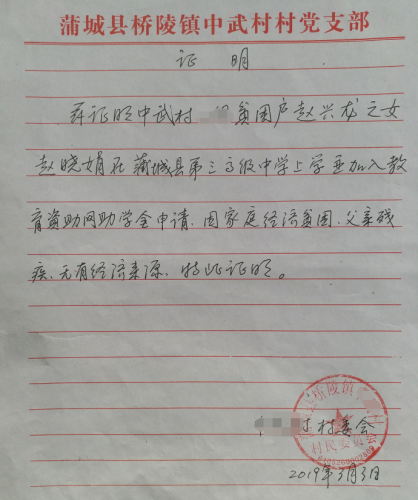 蒲城县桥陵镇中武村村党支部
证 明
兹证明中武村 贫困户赵兴龙之女
赵晓娟在蒲城县第三高级中学上学并加入教
育资助网助学金申请、因家庭经济贫困、父亲残
疾、无有经济来源、特此证明。
村委会
桥陵镇
村民委员会
2019年3月3日